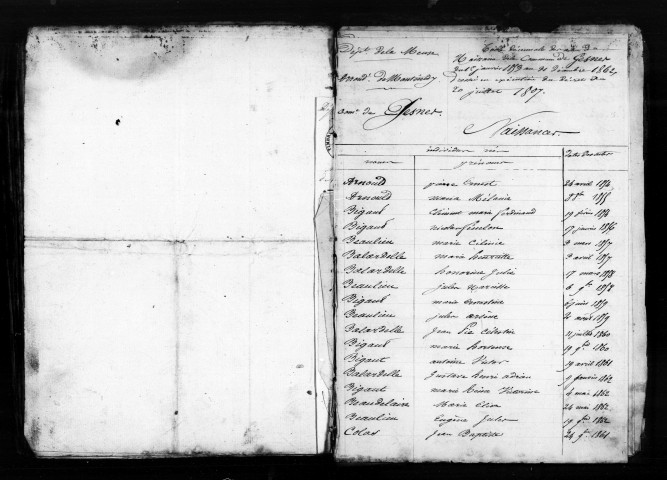 Dépt. de la Meuse
Arrond. de Montmédy
Com. de Gesnes
Table décennale des actes de
Naissances de la Commune de Gesnes
du 1er janvier 1853 au 31 Décembre 1862,
dressée en exécution du Décret du
20 juillet 1807.
Naissances
individus nés
noms prénoms Dates des actes
Arnould pierre Ernest 26 avril
Arnould maria Mélanie 1855
Bigaut Clément marie ferdinand 19 février 1856
Bigaut nicolas fénelon 17 janvier 1856
Beaulieu marie Célinie 3 mars 1857
Balardelle marie henriette 3 avril 1857
Balardelle honorine Julie 17 mars 1858
Beaulieu julie 1858
Bigaut marie Ernestine 1859
Beaulieu julie arsène 2 avril 1859
Balardelle Jean Pie Célestin 11 juillet 1860
Bigaut marie hortense 1860
Bigaut antoine Victor 19 avril 1861
Balardelle Gustave henri adrien 9 février 1862
Bigaut marie Victorine 4 mai 1862
Beaudelaire Marie Elisa 24 mai 1862
Beaulieu Eugène Jules 1862
Colas Jean Baptiste 1861